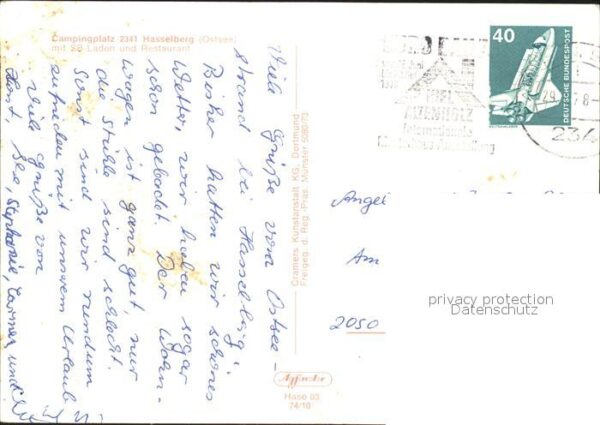 Campingplatz 2341 Hasselberg (Ostsee)
mit SB-Laden und Restaurant
Viele Grüße vom Ostsee-
strand bei Hasselberg!
Bisher hatten wir schönes
Wetter, wir haben sogar
schon gebadet. Der Wohn-
wagen ist ganz gut, nur
die Stühle sind schlecht.
Sonst sind wir rundum
zufrieden mit unserem Urlaub
Viele Grüße von
Horst, Stephanie, und
Cramers Kunstanstalt KG, Dortmund
Freigeg. d. Reg.-Präs. Münster
Hase 03
74/10
40
DEUTSCHE BUNDESPOST
ALTENHOLZ
Internationale
234
Angel
Am
2050
privacy protection
Datenschutz